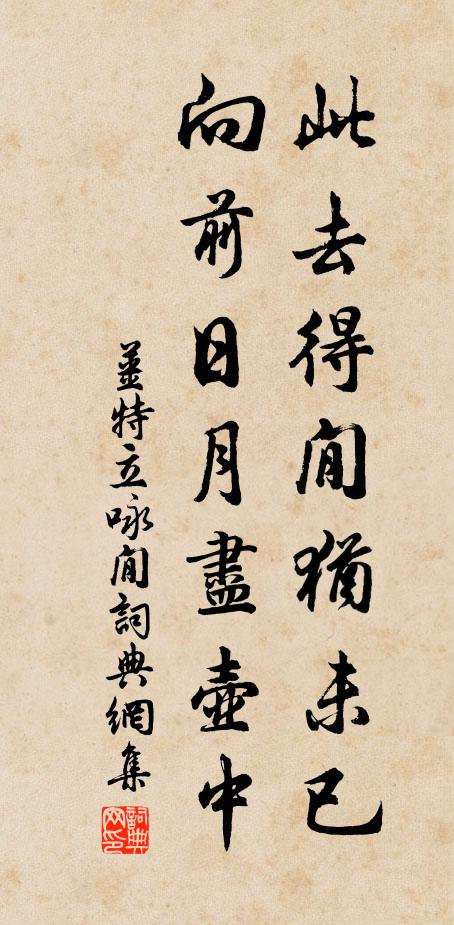 此去得閒猶未已
向前日月盡壺中
姜特立咏閒詞典網集
詞典网印